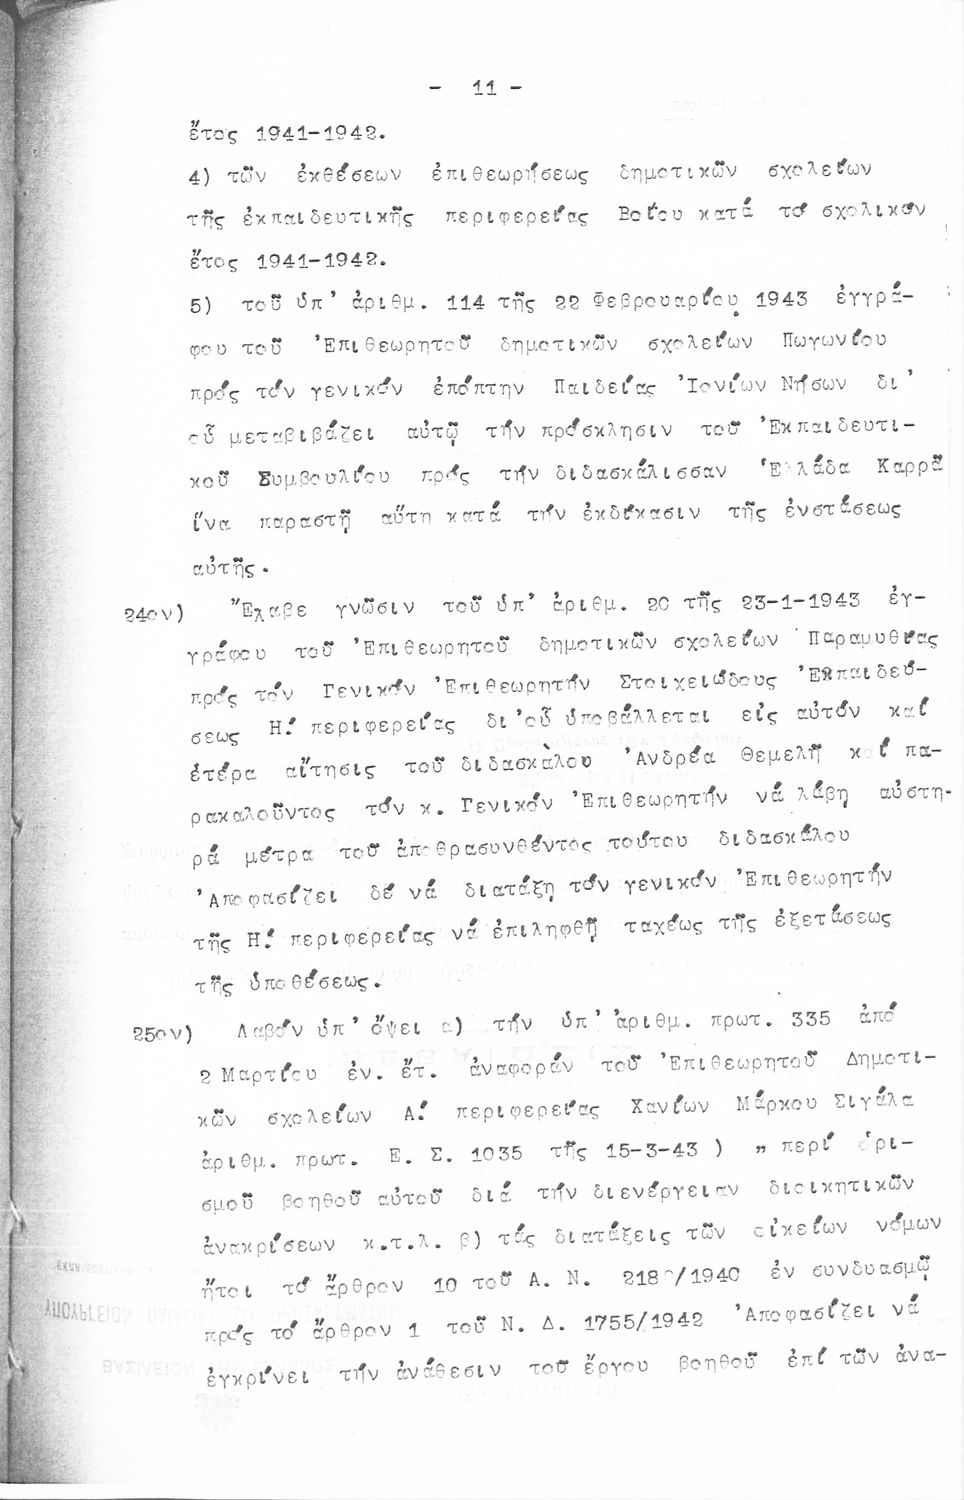 - 11 -
ἔτος 1941-1942.
4) τῶν ἐκθέσεων ἐπιθεωρήσεως δημοτικῶν σχολείων
τῆς ἐκπαιδευτικῆς περιφερείας Βοΐου κατά τό σχολικόν
ἔτος 1941-1942.
5) τοῦ ὑπ' ἀριθμ. 114 τῆς 22 Φεβρουαρίου 1943 ἐγγρά-
φου τοῦ Ἐπιθεωρητοῦ δημοτικῶν σχολείων Πωγωνίου
πρός τόν γενικόν ἐπόπτην Παιδείας Ἰονίων Νήσων δι'
οὗ μεταβιβάζει αὐτῷ τήν πρόσκλησιν τοῦ Ἐκπαιδευτι-
κοῦ Συμβουλίου πρός τήν διδασκάλισσαν Ἑλλάδα Καρρᾶ
ἵνα παραστῇ αὕτη κατά τήν ἐκδίκασιν τῆς ἐνστάσεως
αὐτῆς.
24ον) Ἔλαβε γνῶσιν τοῦ ὑπ' ἀριθμ. 20 τῆς 23-1-1943 ἐγ-
γράφου τοῦ Ἐπιθεωρητοῦ δημοτικῶν σχολείων Παραμυθίας
πρός τόν Γενικόν Ἐπιθεωρητήν Στοιχειώδους Ἐκπαιδεύ-
σεως Η! περιφερείας δι'οὗ ὑποβάλλεται εἰς αὐτόν καί
ἑτέρα αἴτησις τοῦ διδασκάλου Ἀνδρέα Θεμελῆ καί πα-
ρακαλοῦντος τόν κ. Γενικόν Ἐπιθεωρητήν νά λάβῃ αὐστη-
ρά μέτρα τοῦ ἀποθρασυνθέντος τούτου διδασκάλου
Ἀποφασίζει δέ νά διατάξῃ τόν γενικόν Ἐπιθεωρητήν
τῆς Η! περιφερείας νά ἐπιληφθῇ ταχέως τῆς ἐξετάσεως
τῆς ὑποθέσεως.
25ον) Λαβόν ὑπ' ὄψει α) τήν ὑπ' ἀριθμ. πρωτ. 335 ἀπό
2 Μαρτίου ἐν. ἔτ. ἀναφοράν τοῦ Ἐπιθεωρητοῦ Δημοτι-
κῶν σχολείων Α! περιφερείας Χανίων Μάρκου Σιγάλα
ἀριθμ. πρωτ. Ε. Σ. 1035 τῆς 15-3-43 ) " περί ὁρι-
σμοῦ βοηθοῦ αὐτοῦ διά τήν διενέργειαν διοικητικῶν
ἀνακρίσεων κ.τ.λ. β) τάς διατάξεις τῶν οἰκείων νόμων
ἤτοι τό ἄρθρον 10 τοῦ Α. Ν. /1940 ἐν συνδυασμῷ
πρός τό ἄρθρον 1 τοῦ Ν. Δ. 1755/1942 Ἀποφασίζει νά
ἐγκρίνει τήν ἀνάθεσιν τοῦ ἔργου βοηθοῦ ἐπί τῶν ἀνα-